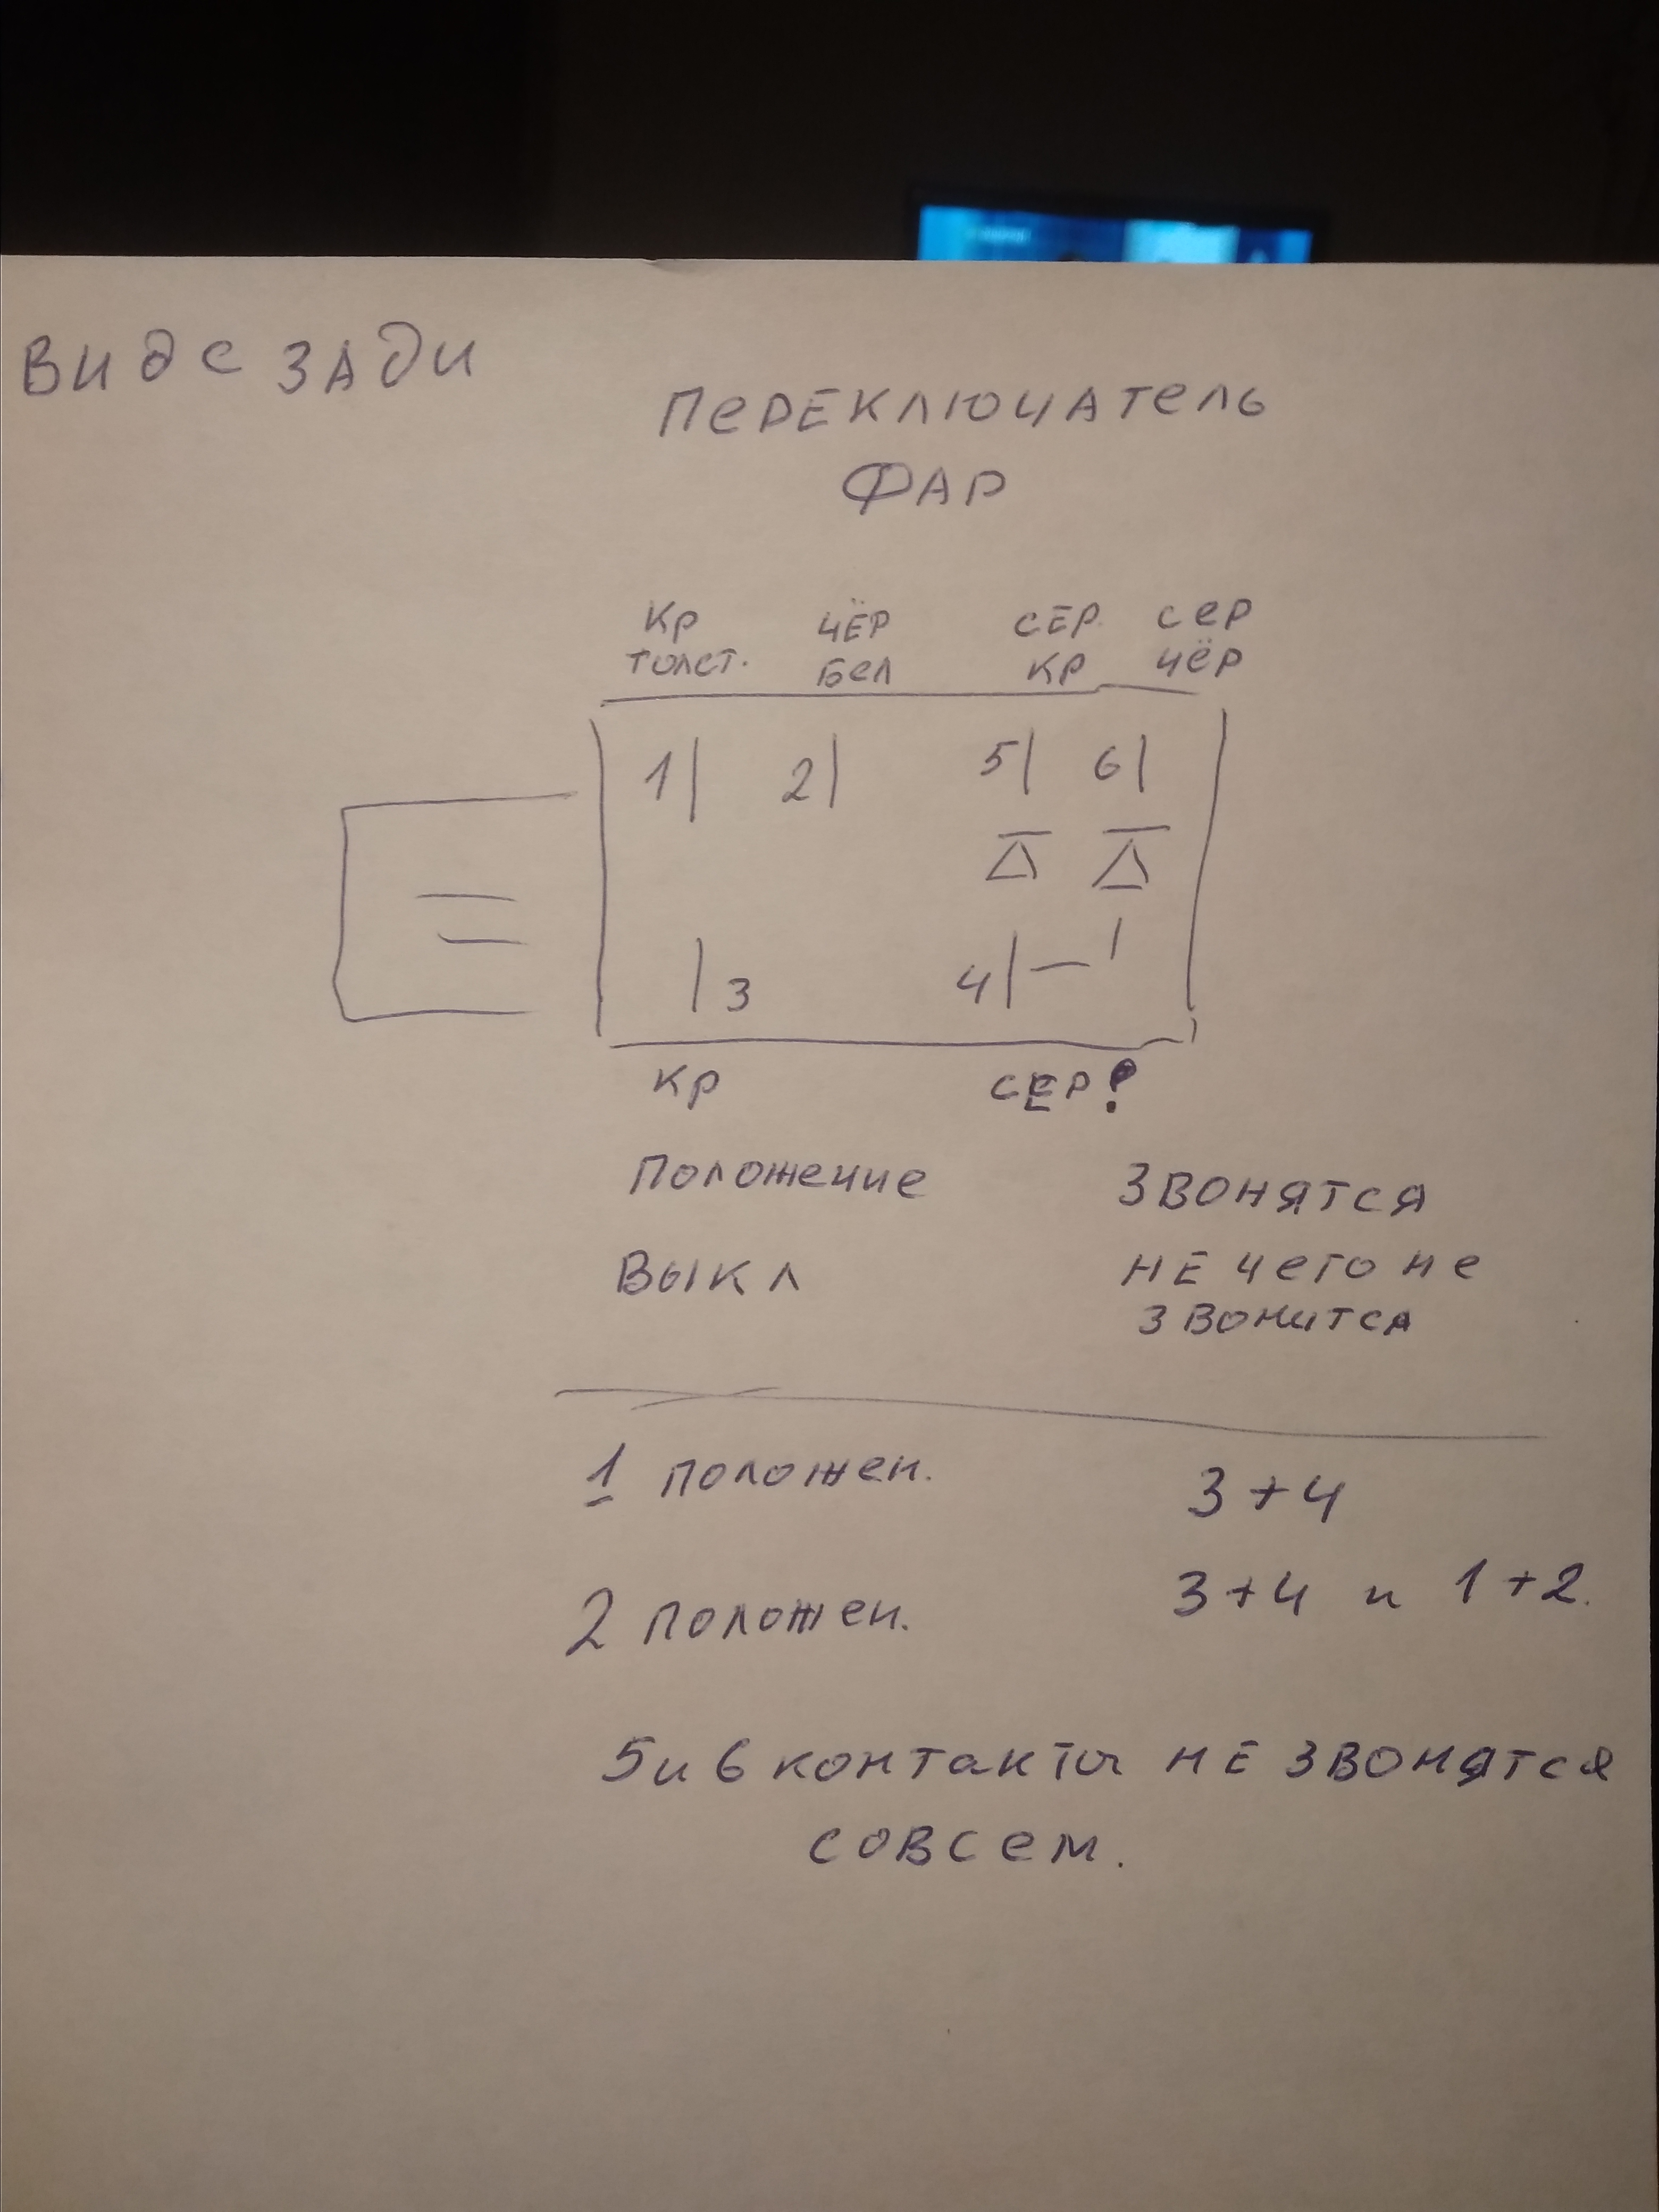 Вид с зади
Переключатель
Фар
Кр чёр сер. сер
толст. бел кр чёр
1 2 5 6
3 4
кр сер?
Положение Звонятся
Выкл не чего не
звонится
1 положен. 3+4
2 положен. 3+4 и 1+2.
5 и 6 контакты не звонятся
совсем.